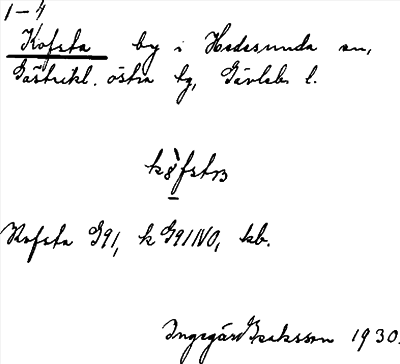 1-4
Kofsta by i Hedesunda sn,
Gästrikl. östra tg, Gävlebs l.
Kofsta G91, k G91NO, kb.
Ingegärd Isaksson 1930.